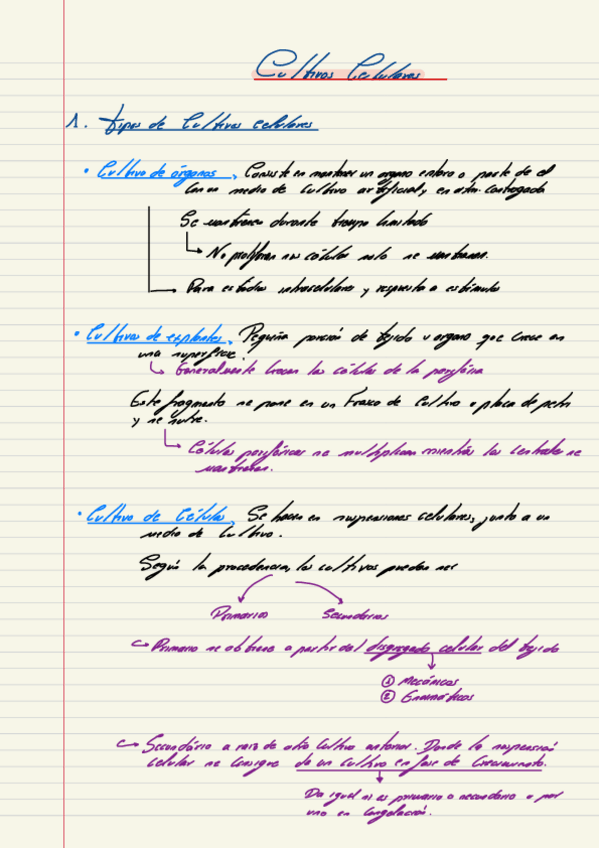 Cultivos Celulares
1. Tipos de Cultivos celulares
• Cultivo de órganos, Consiste en mantener un organo entero o parte de el
en un medio de cultivo artificial y en atm. controgada
Se mantienen durante tiempo limitado
No proliferan las células solo se mantienen.
Para estudios intracelulares y respuesta a estimulos
• Cultivos de explantes, Pequeña porción de tejido u organo que crece en
una superficie.
Generalmente crecen las células de la periferia
Este fragmento se pone en un Frasco de Cultivo o placa de petri
y se nutre.
Células periféricas se multiplican mientras las centrales se
mantienen.
• Cultivo de Células, Se hacen en suspensiones celulares, junto a un
medio de Cultivo.
Según la procedencia, los cultivos pueden ser
Primarios Secundarios
Primario se obtiene a partir del disgregado celular del tejido
① Mecánicos
② Enzimáticos
Secundário a raiz de otro Cultivo anterior. Donde la suspensión
celular se consigue de un cultivo en fase de Crecimiento.
Da igual si es primario o secundario o por
uno en Congelación.